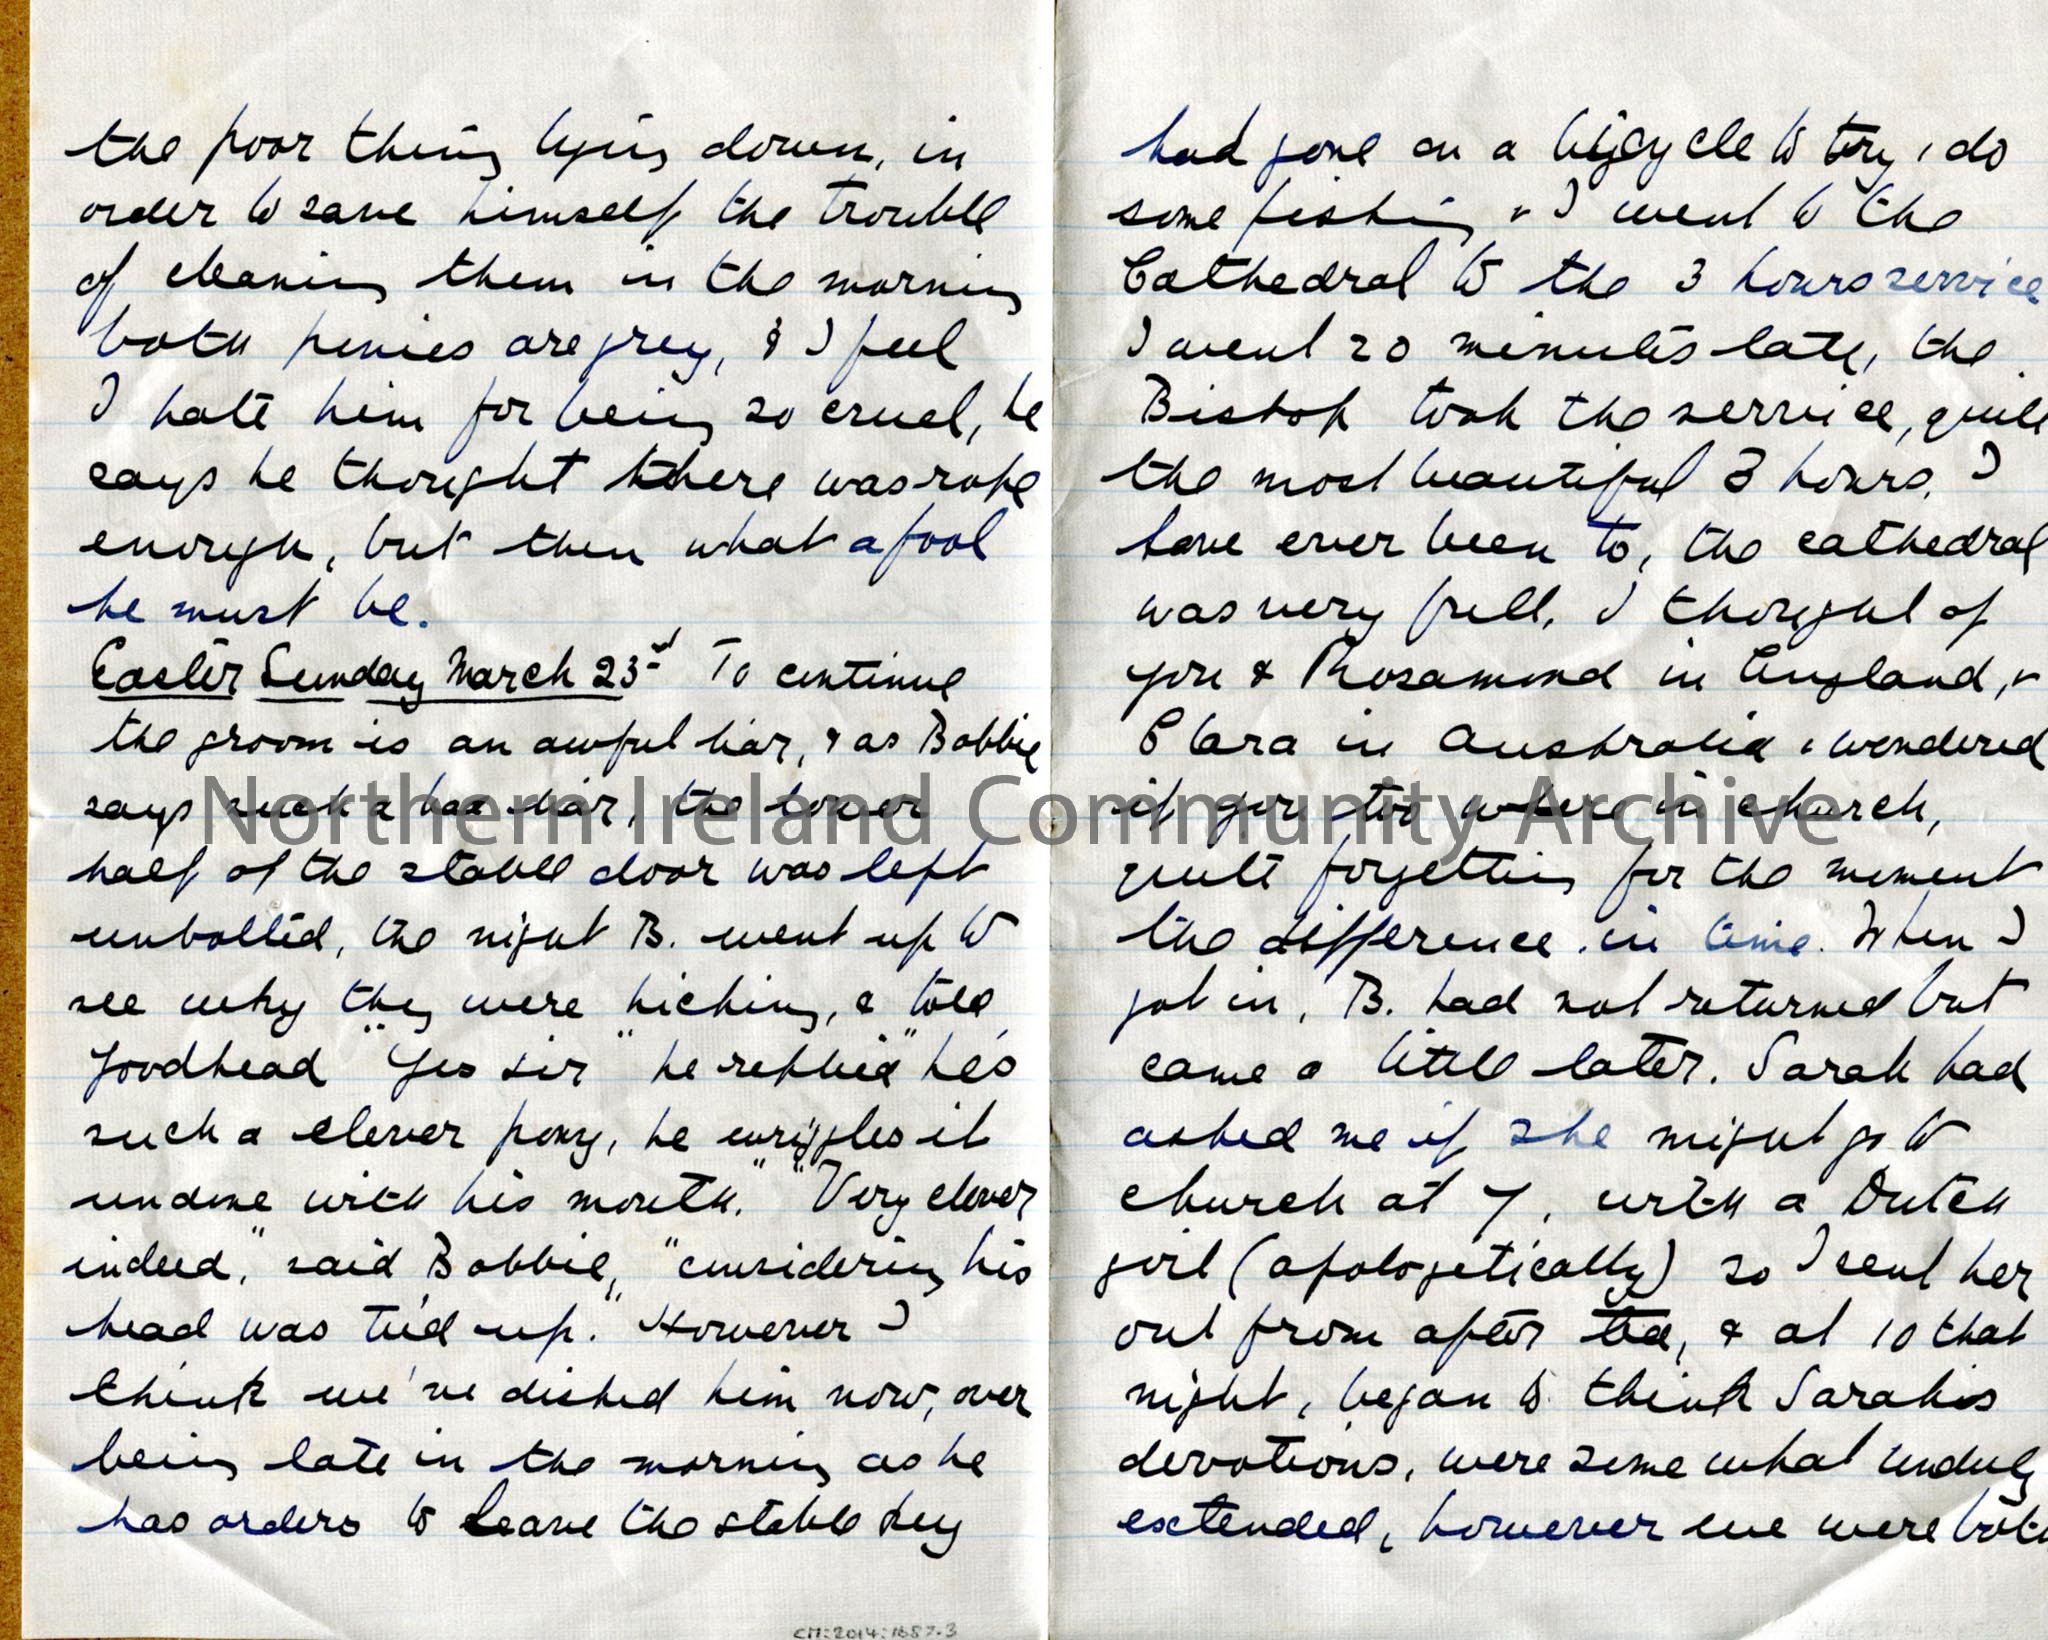 the poor thing lying down, in
order to save himself the trouble
of cleaning them in the morning
both ponies are grey, & I feel
I hate him for being so cruel, he
says he thought there was rope
enough, but then what a fool
he must be.
Easter Sunday March 23rd To continue
the groom is an awful liar, & as Bobbie
says such a bad liar, the lower
half of the stable door was left
unbolted, the night B. went up to
see why they were kicking, & told
Goodhead "Yes sir" he replied "he's
such a clever pony, he wriggles it
undone with his mouth." "Very clever
indeed," said Bobbie, "considering his
head was tied up." However I
think we've dished him now, over
being late in the morning as he
has orders to leave the stable key
had gone on a bicycle to try & do
some fishing & I went to the
Cathedral to the 3 hours service
I went 20 minutes late, the
Bishop took the service, quite
the most beautiful 3 hours, I
have ever been to, the cathedral
was very full, I thought of
you & Rosamond in England, &
Clara in Australia & wondered
if you too where in church,
quite forgetting for the moment
the difference in time. When I
got in, B. had not returned but
came a little later. Sarah had
asked me if she might go to
church at 7, with a Dutch
girl (apologetically) so I sent her
out from after tea, & at 10 that
night, began to think Sarah's
devotions, were some what unduly
extended, however we were both
Northern Ireland Community Archive
CM:2014:1687.3